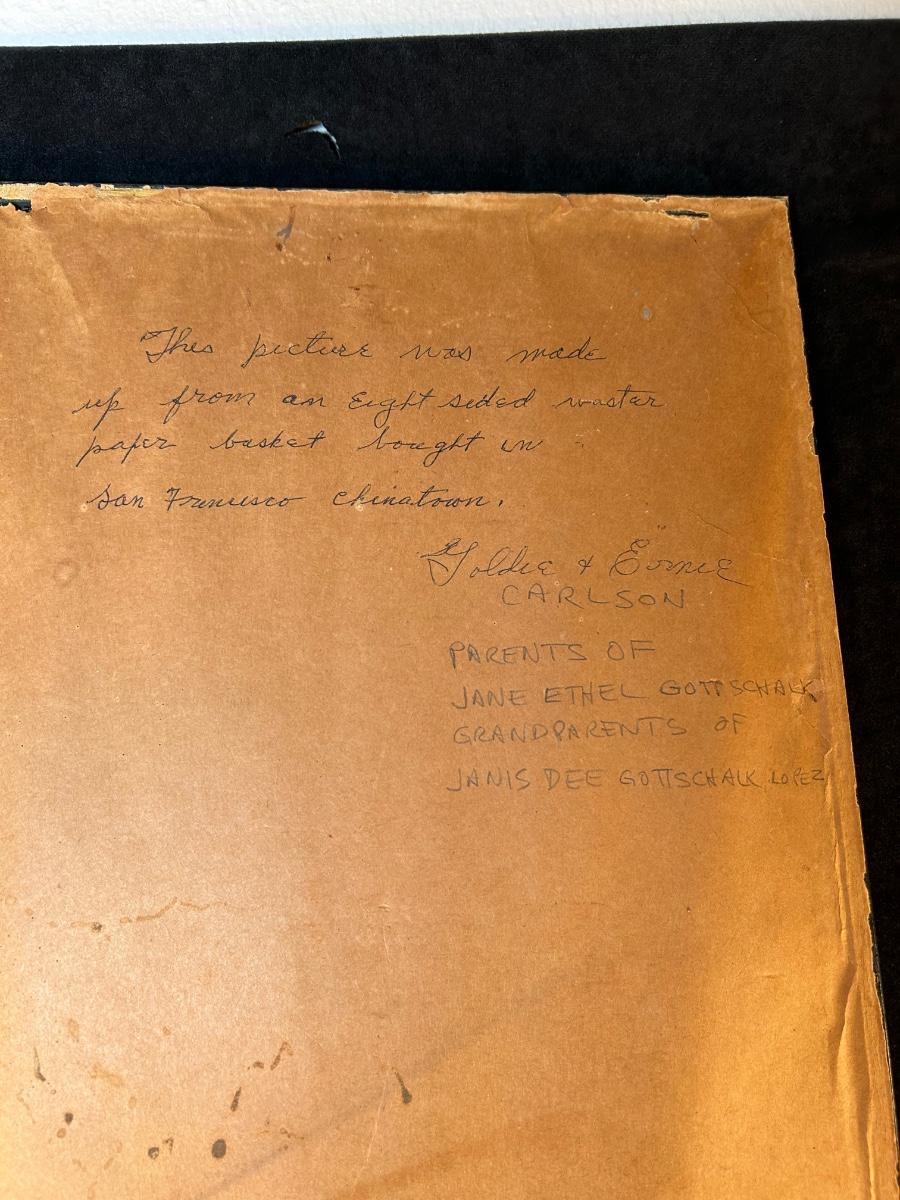 This picture was made
up from an Eight sided waster
paper basket bought in
San Francisco Chinatown.
Goldie & Ernie
CARLSON
PARENTS OF
JANE ETHEL GOTTSCHALK
GRANDPARENTS OF
JANIS DEE GOTTSCHALK LOPEZ